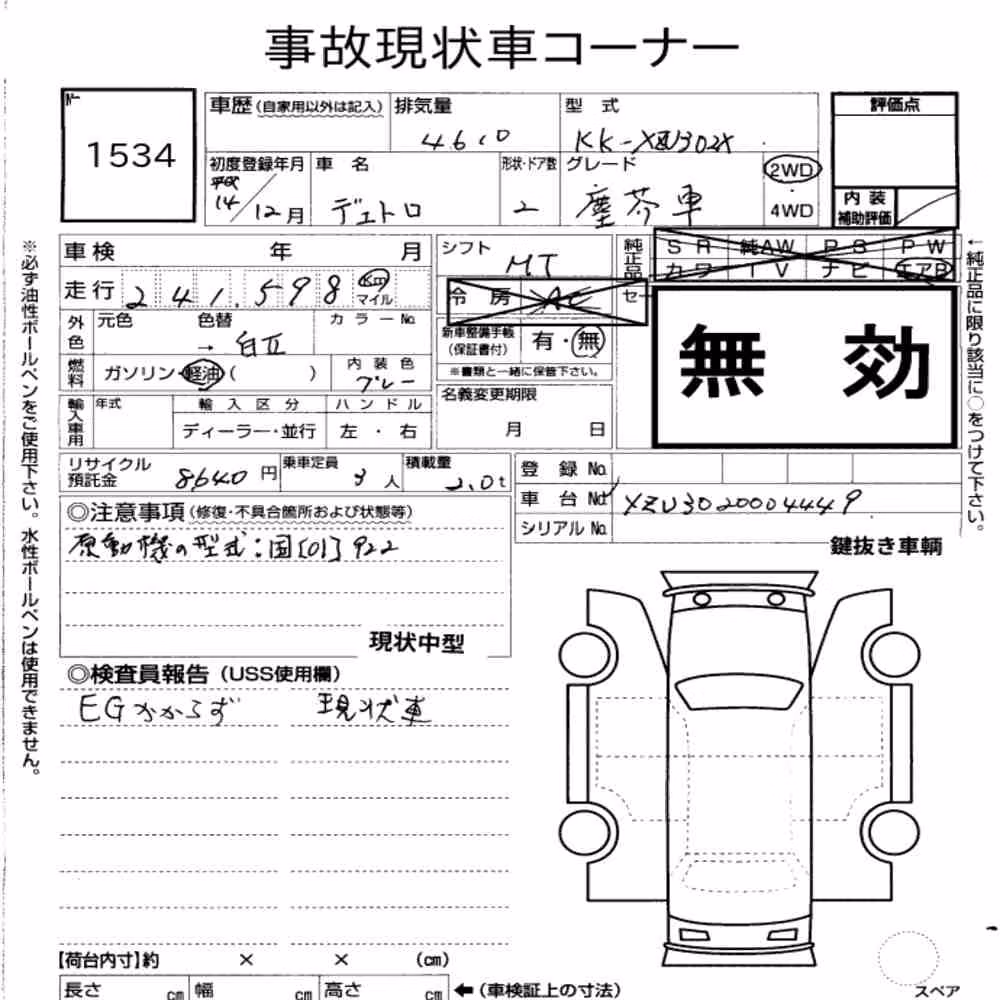 事故現状車コーナー
No. 1534
車歴(自家用以外は記入) 排気量 4610 型式 KK-XZU302X
評価点
初度登録年月 平成 14/12月 車名 デュトロ 形状・ドア数 2 グレード 塵芥車 2WD 4WD
内装補助評価
車検 年 月
シフト MT
純正品 SR 純AW PS PW カワ TV ナビ エアB
走行 241,598 km マイル
冷房 AC
外色 元色 色替 → 白Ⅱ カラーNo.
新車整備手帳(保証書付) 有・無
※書類と一緒に保管下さい。
無効
燃料 ガソリン・軽油( ) 内装色 グレー
名義変更期限 月 日
輸入車用 年式 輸入区分 ディーラー・並行 ハンドル 左・右
リサイクル預託金 8640円 乗車定員 3人 積載量 2.0t
登録No.
車台No. XZU3020004449
シリアルNo.
◎注意事項(修復・不具合箇所および状態等)
原動機の型式:国[01]922
鍵抜き車輌
現状中型
◎検査員報告(USS使用欄)
EGかからず 現状車
【荷台内寸】約 × × (cm)
長さ cm 幅 cm 高さ cm ←(車検証上の寸法)
スペア
※必ず油性ボールペンをご使用下さい。水性ボールペンは使用できません。
←純正品に限り該当に○をつけて下さい。